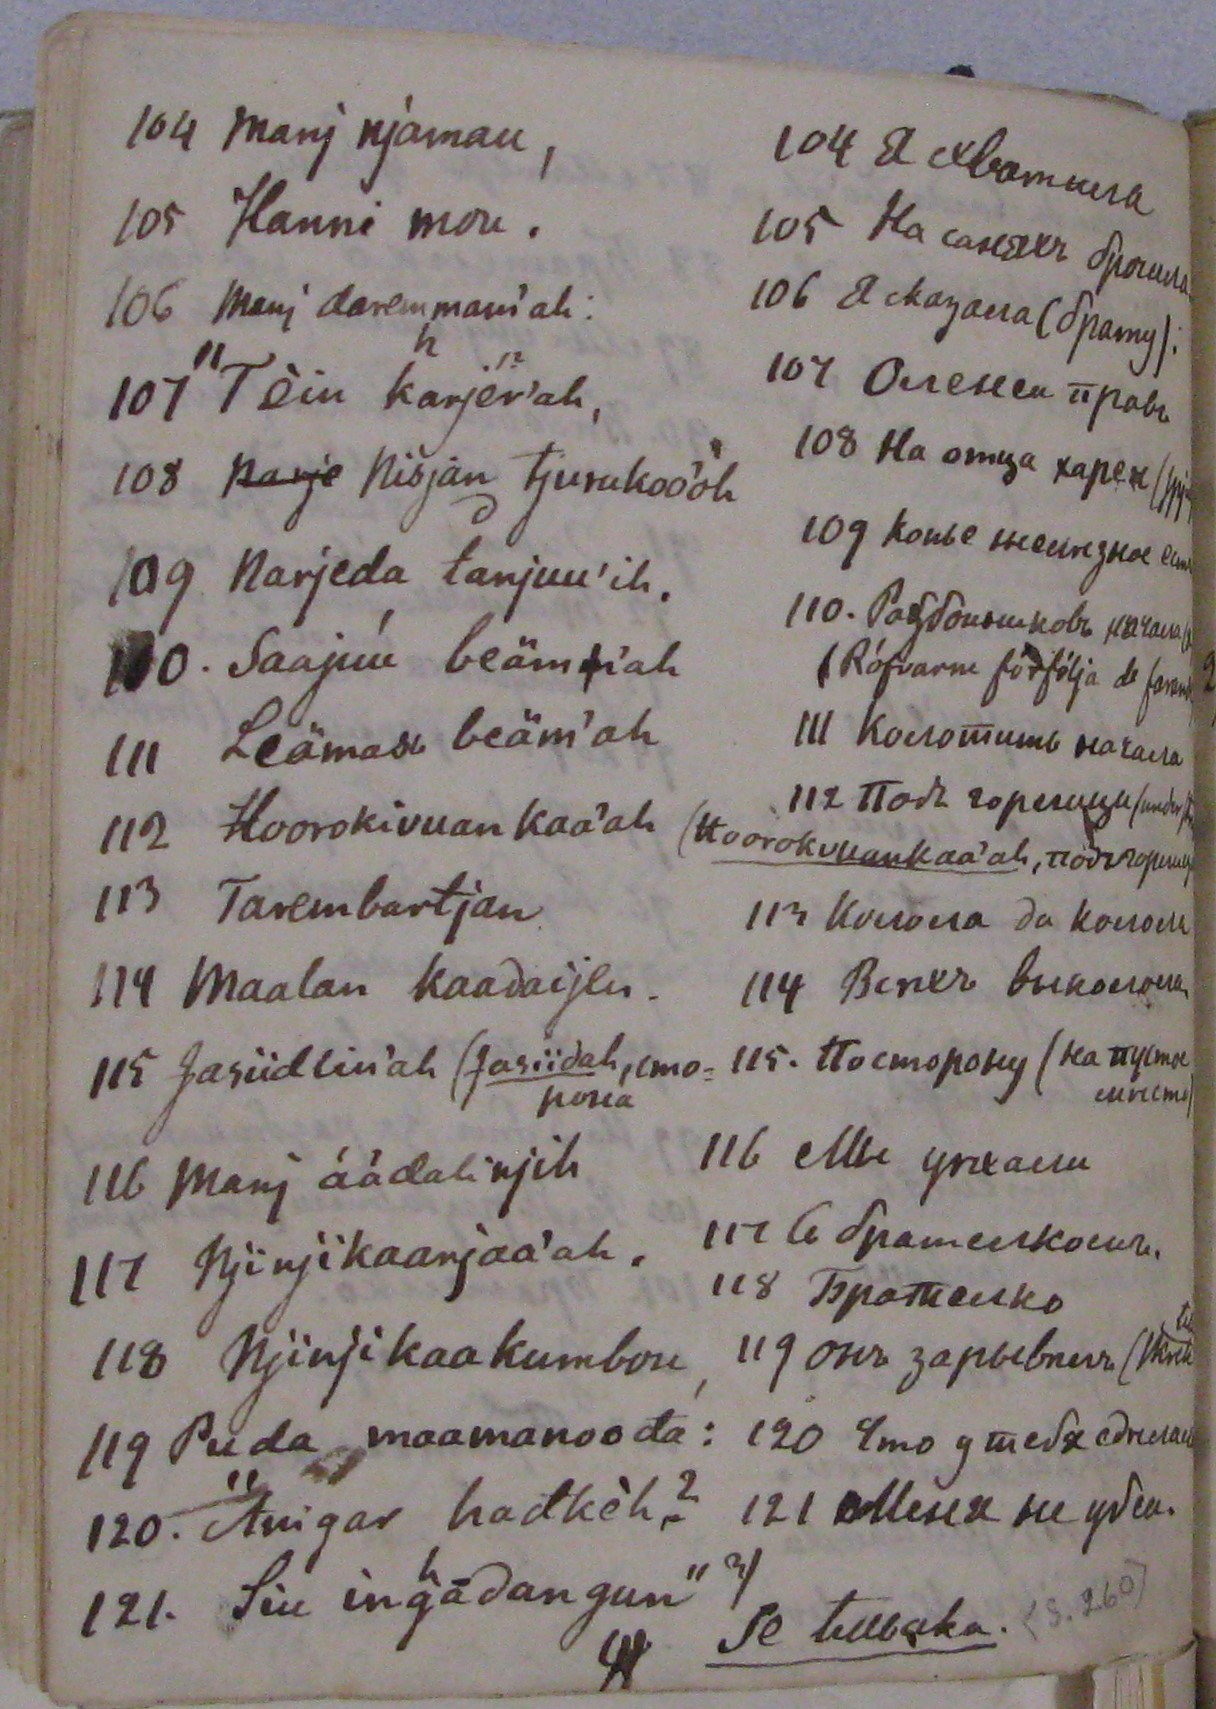 104 Manj njamau,
105 Hanni mou.
106 Manj daremmam'ah:
107 "Tein karjer'ah,
108 Narje Nisjan tjurukoo'oh
109 Narjeda tanjuu'ih.
110. Saajuu beäm'ah
111 Leämax beäm'ah
112 Hoorokivuan kaa'ah
113 Tarembartjan
114 Maalan kaadaijeu.
115 Jasiidliu'ah (Jasiidah, сто=
рона
116 Manj áádahinjih
117 Njinjikaanjaa'ah.
118 Njinjikaakumbou,
119 Puda maamanooda:
120. "Amgar hadkèh?
121. Siu ingādangun" 2)
104 Я схватила
105 На саняхъ бросила
106 Я сказала (брату):
107 Оленеи правь
108 На отца харея
109 Копье железное
110. Разбоиниковъ начала
(Röfvarne förfölja de
111 Колотить начала
112 Подъ горелицу (under
(Hoorokivuankaa'ah, подъ
113 Колола да колола
114 Всехъ выколола
115. Посторону (на пустое
место)
116 Мы уехали
117 Съ брателкомъ.
118 Брателко
119 онъ зарывелъ
120 Что у тебя сделал
121 Меня не убей.
Se tillbaka. (S. 260)